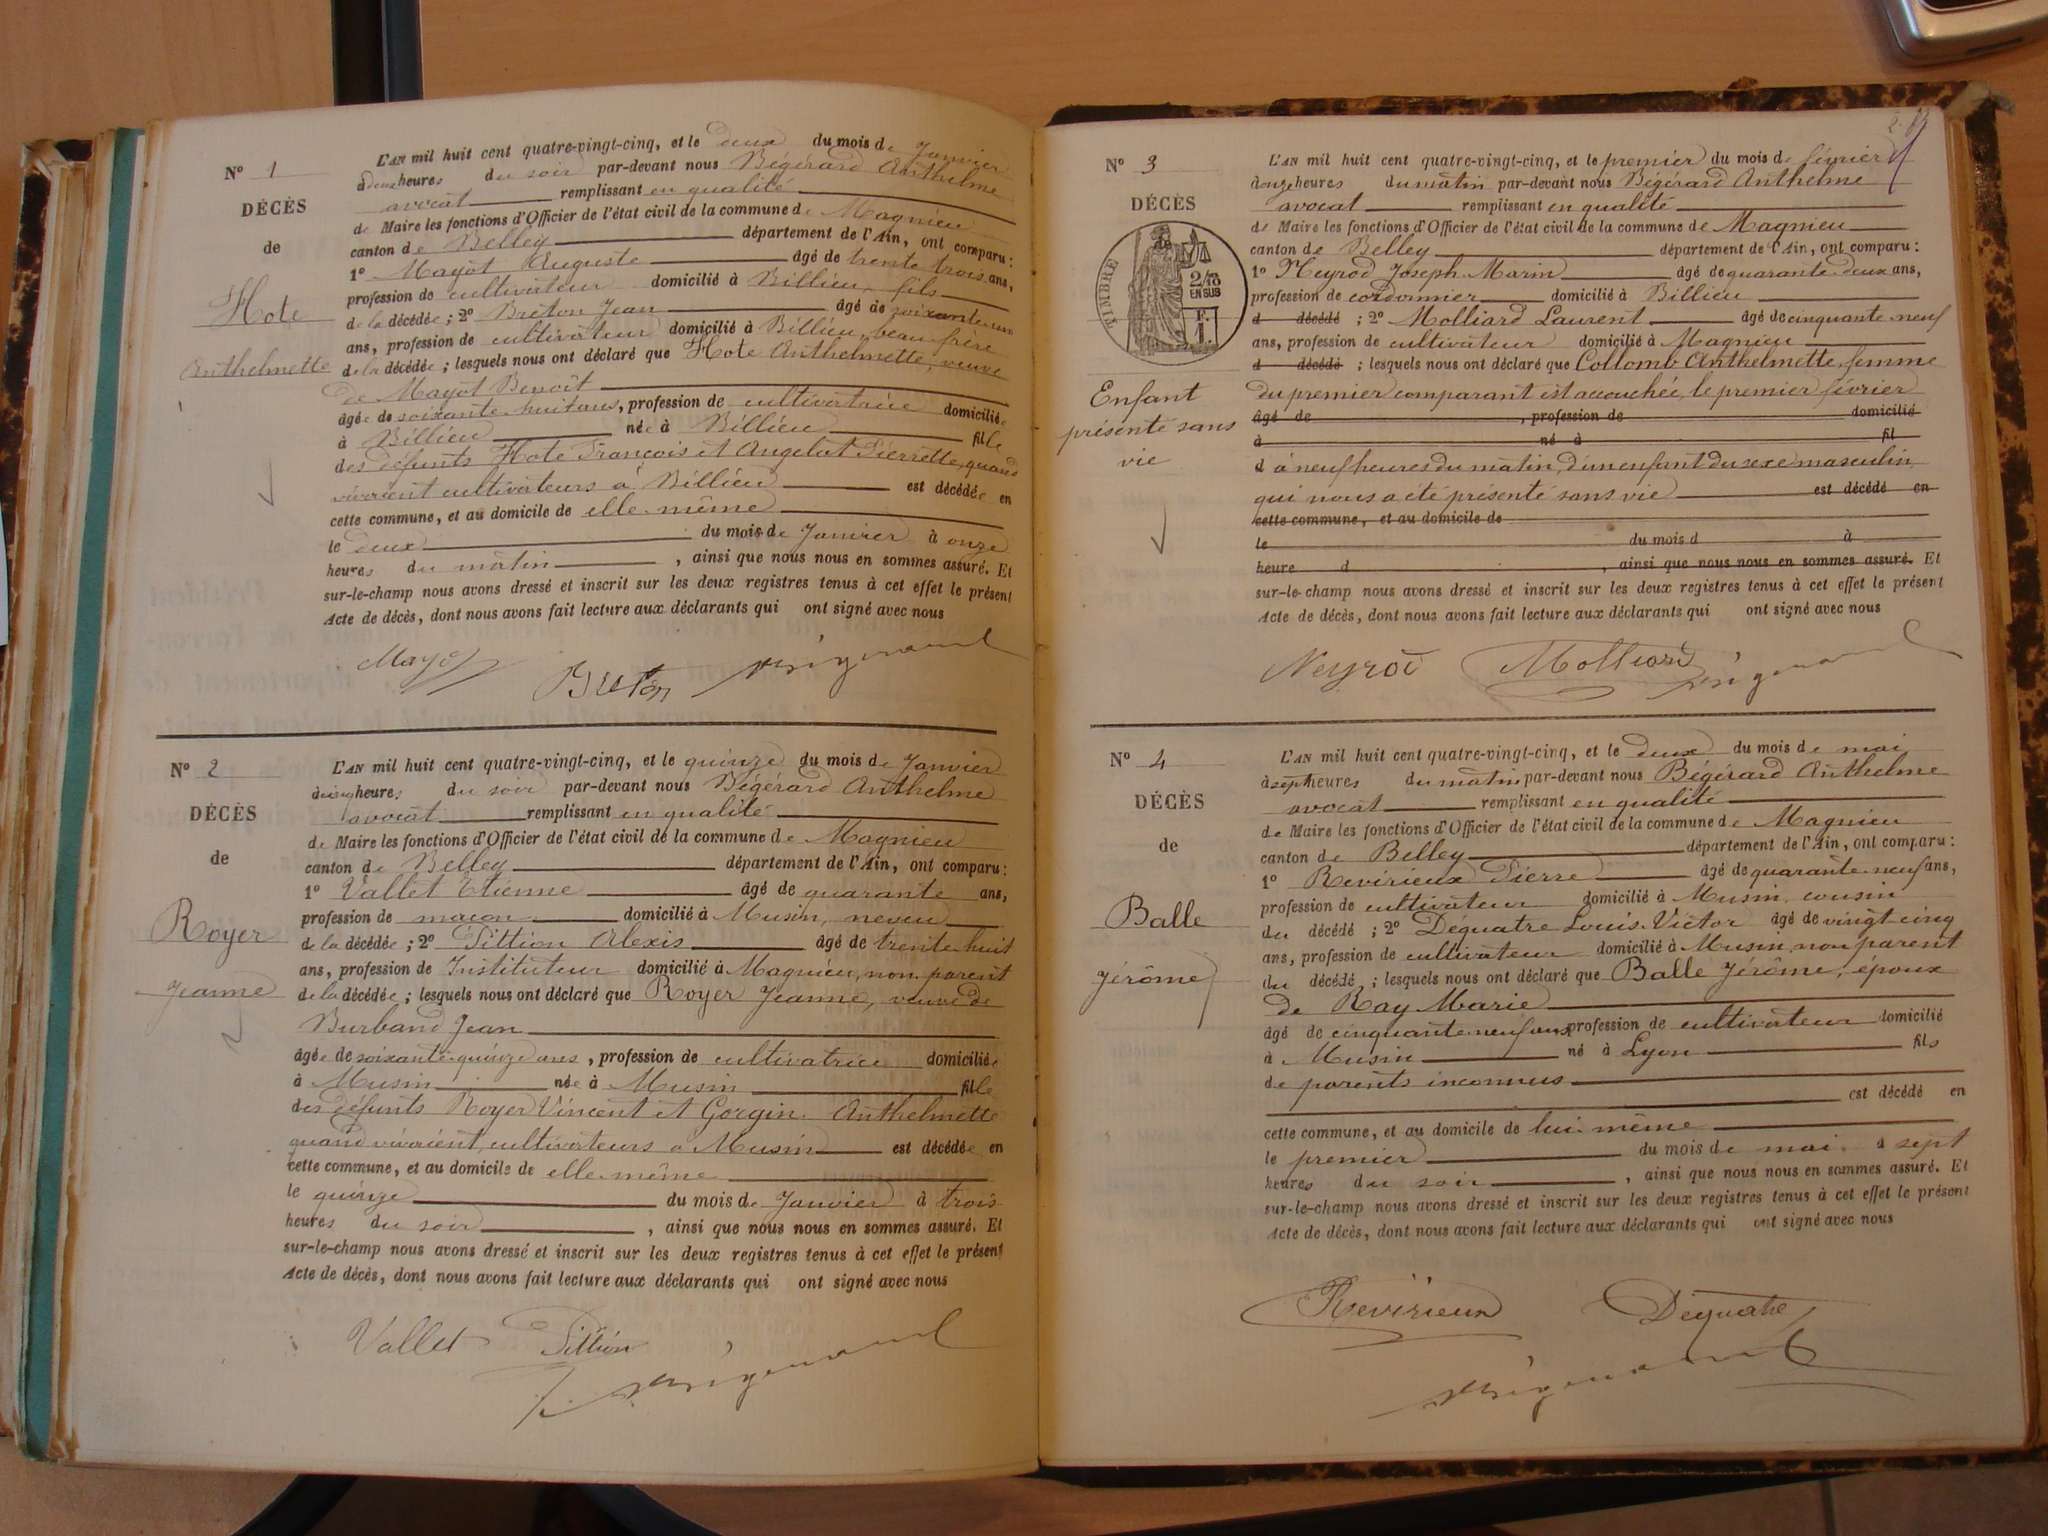 N° 1
DÉCÈS
de
Hote
Anthelmette
L'AN mil huit cent quatre-vingt-cinq, et le deux du mois de Janvier
à deux heures du soir par-devant nous Bégérard Anthelme
avocat remplissant en qualité
de Maire les fonctions d'Officier de l'état civil de la commune de Magnieu
canton de Belley département de l'Ain, ont comparu :
1° Mayot Auguste âgé de trente trois ans,
profession de cultivateur domicilié à Billieu, fils
de la décédée ; 2° Breton Jean âgé de soixante un
ans, profession de cultivateur domicilié à Billieu, beau frère
de la décédée ; lesquels nous ont déclaré que Hote Anthelmette, veuve
de Mayot Benoît
âgée de soixante huit ans, profession de cultivatrice domiciliée
à Billieu née à Billieu fille
des défunts Hote François et Angelot Pierrette, quand
vivaient cultivateurs à Billieu est décédée en
cette commune, et au domicile de elle-même
le deux du mois de Janvier à onze
heures du matin , ainsi que nous nous en sommes assuré. Et
sur-le-champ nous avons dressé et inscrit sur les deux registres tenus à cet effet le présent
Acte de décès, dont nous avons fait lecture aux déclarants qui ont signé avec nous
Mayot Breton
N° 2
DÉCÈS
de
Royer
Jeanne
L'AN mil huit cent quatre-vingt-cinq, et le quinze du mois de Janvier
à cinq heures du soir par-devant nous Bégérard Anthelme
avocat remplissant en qualité
de Maire les fonctions d'Officier de l'état civil de la commune de Magnieu
canton de Belley département de l'Ain, ont comparu :
1° Vallet Etienne âgé de quarante ans,
profession de maçon domicilié à Musin, neveu
de la décédée ; 2° Pittion Alexis âgé de trente huit
ans, profession de Instituteur domicilié à Magnieu, non parent
de la décédée ; lesquels nous ont déclaré que Royer Jeanne, veuve de
Burband Jean
âgée de soixante quinze ans, profession de cultivatrice domiciliée
à Musin née à Musin fille
des défunts Royer Vincent et Gorgin Anthelmette
quand vivaient cultivateurs à Musin est décédée en
cette commune, et au domicile de elle même
le quinze du mois de Janvier à trois
heures du soir , ainsi que nous nous en sommes assuré. Et
sur-le-champ nous avons dressé et inscrit sur les deux registres tenus à cet effet le présent
Acte de décès, dont nous avons fait lecture aux déclarants qui ont signé avec nous
Vallet Pittion
N° 3
DÉCÈS
TIMBRE
2/10
EN SUS
F.
1.
Enfant
présenté sans
vie
L'AN mil huit cent quatre-vingt-cinq, et le premier du mois de février
à onze heures du matin par-devant nous Bégérard Anthelme
avocat remplissant en qualité
de Maire les fonctions d'Officier de l'état civil de la commune de Magnieu
canton de Belley département de l'Ain, ont comparu :
1° Neyrod Joseph Marin âgé de quarante deux ans,
profession de cordonnier domicilié à Billieu
d décédé ; 2° Molliard Laurent âgé de cinquante neuf
ans, profession de cultivateur domicilié à Magnieu
d décédé ; lesquels nous ont déclaré que Collomb Anthelmette, femme
du premier comparant est accouchée, le premier février
âgé de , profession de domicilié
à né à fil
d à neuf heures du matin, d'un enfant du sexe masculin,
qui nous a été présenté sans vie est décédé en
cette commune, et au domicile de
le du mois d à
heure d , ainsi que nous nous en sommes assuré. Et
sur-le-champ nous avons dressé et inscrit sur les deux registres tenus à cet effet le présent
Acte de décès, dont nous avons fait lecture aux déclarants qui ont signé avec nous
Neyrod Molliard
N° 4
DÉCÈS
de
Balle
Jérôme
L'AN mil huit cent quatre-vingt-cinq, et le deux du mois de mai
à sept heures du matin par-devant nous Bégérard Anthelme
avocat remplissant en qualité
de Maire les fonctions d'Officier de l'état civil de la commune de Magnieu
canton de Belley département de l'Ain, ont comparu :
1° Revirieux Pierre âgé de quarante neuf ans,
profession de cultivateur domicilié à Musin, cousin
du décédé ; 2° Déquatre Louis Victor âgé de vingt cinq
ans, profession de cultivateur domicilié à Musin, non parent
du décédé ; lesquels nous ont déclaré que Balle Jérôme, époux
de Ray Marie
âgé de cinquante neuf ans profession de cultivateur domicilié
à Musin né à Lyon fils
de parents inconnus
est décédé en
cette commune, et au domicile de lui-même
le premier du mois de mai à sept
heures du soir , ainsi que nous nous en sommes assuré. Et
sur-le-champ nous avons dressé et inscrit sur les deux registres tenus à cet effet le présent
Acte de décès, dont nous avons fait lecture aux déclarants qui ont signé avec nous
Revirieux Dequatre